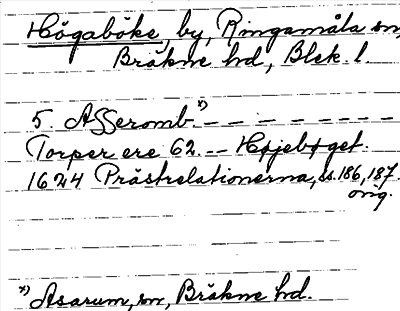 Högaböke by, Ringamåla sn,
Bräkne hd, Blek. l.
5. Asseromb. x) — — — — — — — —
Torper ere 62. -- Højebøget.
1624 Prästrelationerna, s. 186, 187.
orig.
x) Asarum, sn, Bräkne hd.